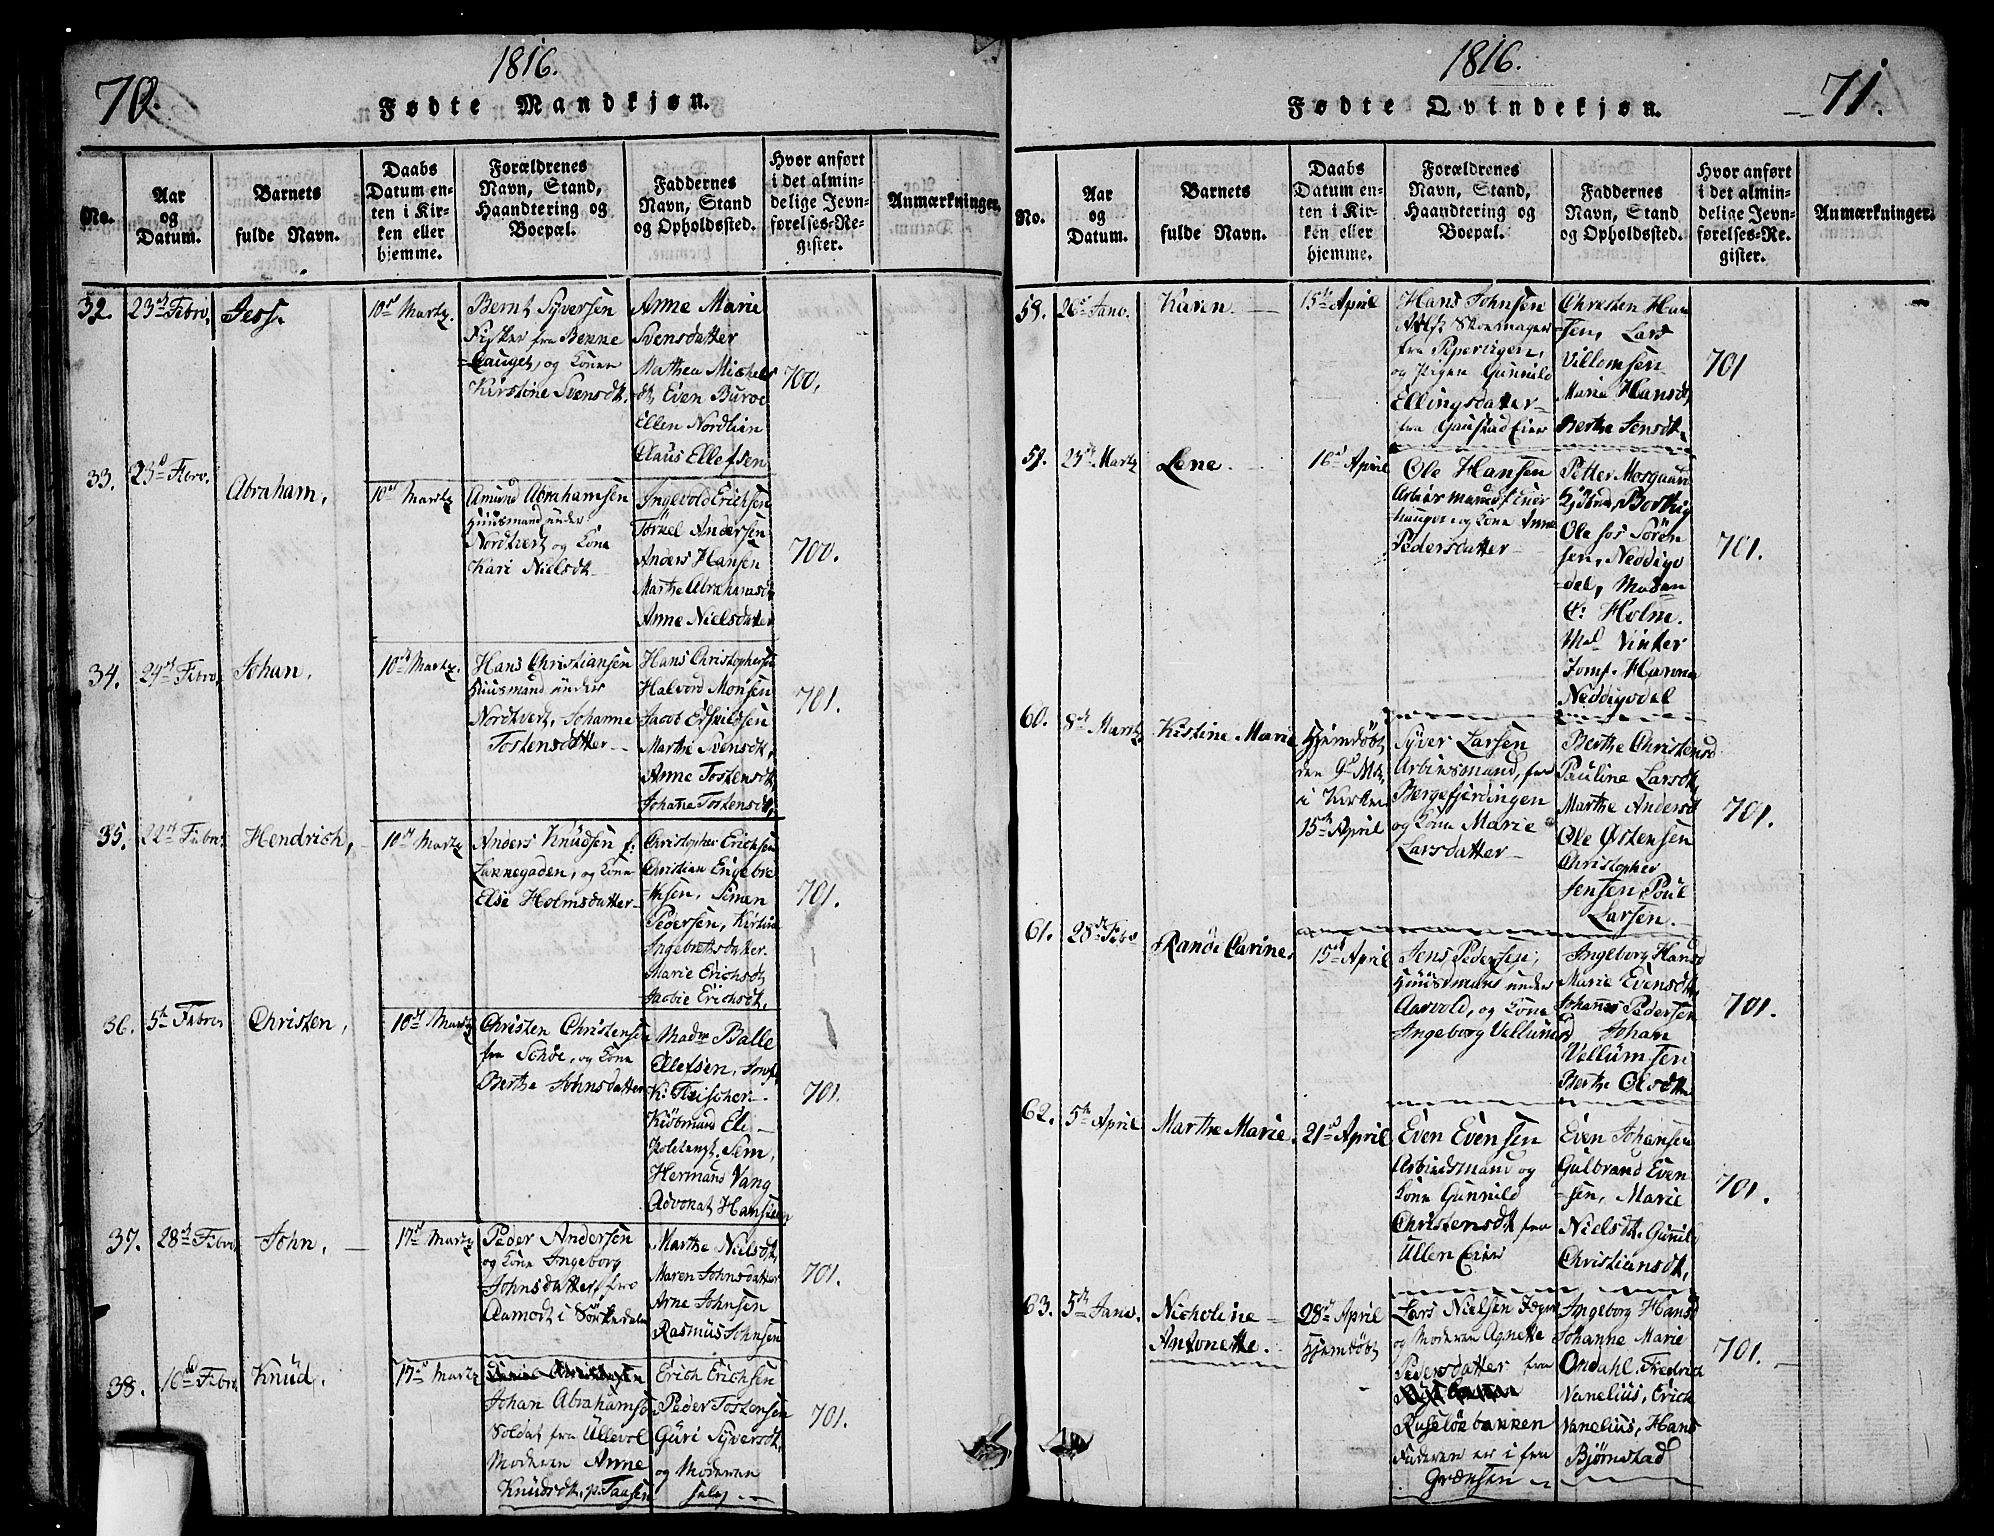 70.
1816.
Fødte Mandkjøn.
No.
Aar
og
Datum.
Barnets
fulde Navn.
Daabs
Datum en-
ten i Kir-
ken eller
hjemme.
Forældrenes
Navn, Stand,
Haandtering og
Boepæl.
Faddernes
Navn, Stand
og Opholdssted.
Hvor anført
i det almin-
delige Jevn-
førelses-Re-
gister.
Anmærkninger.
32.
23de Febro.
Jess.
10de Martz.
Bernt Syversen
Fisker fra Benne
hauget, og Kone
Kirstine Svensdtr.
Anne Marie
Svensdatter
Mathea Michels
dtr Even Buroe
Ellen Nordlien
Claus Ellefsen
700.
33.
23de Febro.
Abraham,
10de Martz
Amund Abrahamsen
Huusmand under
Nordtvert og Kone
Kari Nielsdtr
Ingevold Erichsen
Torkel Andersen
Anders Hansen
Marthe Abrahamsdr
Anne Nielsdatter
700.
34.
24de Febro.
Johan,
10de Martz.
Hans Christiansen
Huusmand under
Nordtvert, Johanne
Tostensdatter
Hans Christophersen
Halvord Monsen
Jacob
Marthe Svensdtr,
Anne Tostensdtr,
Johanne Tostensdtr,
701.
35.
22de Febro.
Hendrich,
10de Martz
Anders Knudsen f:
Lakkegaden, og Kone
Else Holmsdatter
Christopher Erichsen
Christian Engebre
thsen, Simen
Pedersen, Kirstine
Ingebrethsdatter.
Marie Erichsdtr
Jacobie Erichsdtr,
701.
36.
5te Febro.
Christen,
10de Martz
Christen Christensen
fra Schöe, og Kone
Berthe Johnsdatter
Madme Balle
Ellefsen, Jomf.
K: Fleischer
Kiöbmand Eli
Poletangt. Sem,
Hermans Vang
Advokat Hansteen
701.
37.
28de Febro.
John,
17de Martz
Peder Andersen
og Kone Ingeborg
Johnsdatter, fra
Aamodt i Sörkedalen
Marthe Nielsdtr,
Maren Johnsdatter
Arne Johnsen
Rasmus Johnsen
701.
38.
16de Febro.
Knud,
17de Martz
Johan Abrahamsen
Soldat fra Ullevol
Moderen Anne
Knudsdtr, p. Taasen
Erich Erichsen
Peder Tostensen
Guri Syversdtr,
og Moderen
selv.
701.
1816.
71.
Fødte Qvindekjøn.
No.
Aar
og
Datum.
Barnets
fulde Navn.
Daabs
Datum en-
ten i Kir-
ken eller
hjemme.
Forældrenes
Navn, Stand,
Haandtering og
Boepæl.
Faddernes
Navn, Stand
og Opholdssted.
Hvor anført
i det almin-
delige Jevn-
førelses-Re-
gister.
Anmærkninger.
59.
26de Jano.
Karen
15de April
Hans Johnsen
Skoemager
fra Pepervigen,
og Pigen Gunnild
Ellingsdatter
fra Gaustad Eier
Christen Han
sen, Lars
Villomsen
Marie Hansdtr,
Berthe Jensdtr,
701
59.
23de Martz
Lene
16de April
Ole Hansen
Arbeidsmand f
hauger og Kone Anne
Pedersdatter
Petter Morgaan
Kjöbmd, Borthig
Ole sos Sören
sen, Neddigo
del, Madam
C: Holm
Md Vinter
Jomf. Hanna
Neddigodel
701.
60.
8de Martz
Kistine Marie
Hjemdöbt
den 9de Mtz,
i Kirken
15de April
Syver Larsen
Arbeidsmand, fra
Bergefjerdingen
og Kone Marie
Larsdatter
Berthe Christensd
Pauline Larsdtr,
Marthe Andersd
Ole Østensen
Christopher
Jensen, Poul
Larsen.
701.
61.
28de Febr
Ranöe Carine,
15de April
Jens Pedersen,
Huusmand under
Aarvold, og Kone
Ingeborg Vellumsd
Ingeborg Hansd
Marie Evensdtr
Johannes Pedersen
Johan
Vellumsen
Berthe Olsdtr
701.
62.
5te April
Marthe Marie.
21de April
Even Evensen
Arbeidsmand og
Kone Gunnild
Christensdtr fra
Ullern Eier
Even Johansen
Gulbrand Even
sen, Marie
Nielsdtr, Gunild
Christiansdtr,
701.
63.
5te Jano.
Nicholine
Antonette.
28de April
Hjemdöbt
Lars Nielsen Jæger
og Moderen Agnette
Pedersdatter fra
Ruselöebakken
Faderen er i fra
Grændsen
Ingeborg Hansd
Johanne Marie
Omdahl. Fredrich
Vanelius, Erich
Vanelius, Hans
Bjørnstad
701.